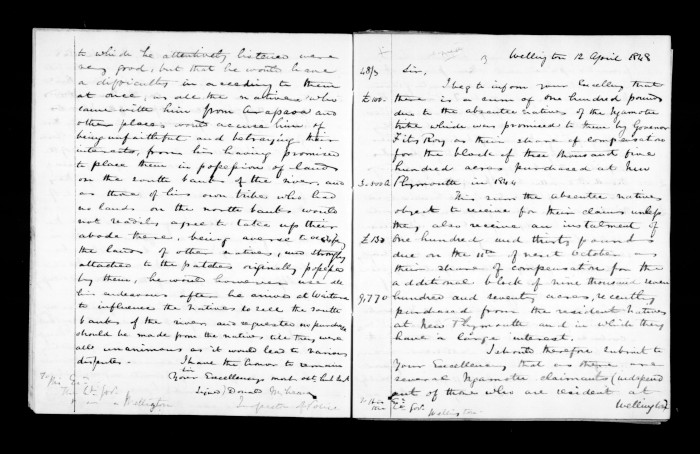 to which he attentively listened were
very good, but that he would have
a difficulty in acceding to them
at once, as all the natives who
came with him from Arapaoa and
other places would accuse him of
being unfaithful and betraying their
interests, from his having promised
to place them in possession of lands
on the south banks of the river, and
as those of his own tribes who had
no lands on the north banks would
not readily agree to take up their
abode there, being averse to occupy
the lands of other natives, and strongly
attached to the patches originally possessed
by them, he would however use all
his endeavours after he arrived at Waitara
to influence the natives to sell the south
banks of the river and requested no purchase
should be made from the natives till they were
all unanimous as it would lead to various
disputes.
I have the honor to remain
Sir
Your Excellency's most obt hbl St
Signed/ Donald McLean
Inspector of Police
To His Ex
The Lt. Gov.
Wellington
3 Wellington 12 April 1848
48/3 Sir,
I beg to inform your Excellency that
£100. there is a sum of one hundred pounds
due to the absentee natives of the Ngamotu
tribe which was promised to them by Governor
FitzRoy as their share of compensation
for the block of three thousand five
hundred acres purchased at New
3.500 a Plymouth, in 1844
This sum the absentee natives
object to receive for their claims unless
they also receive an instalment of
£130 one hundred and thirty pounds
due on the 11th of next October as
their share of compensation for the
additional block of nine thousand seven
9,770 hundred and seventy acres, recently
purchased from the resident natives
at New Plymouth and in which they
have a large interest.
I should therefore submit to
Your Excellency that as there are
several Ngamotu claimants (independ
ent of those who are resident at
To His Ex Wellington
The Lt. Gov.
Wellington.